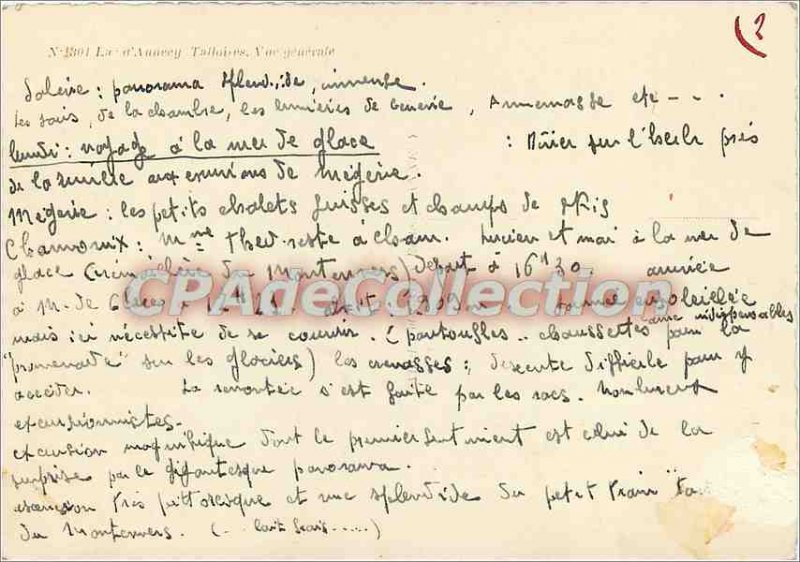 2
N° 1301 La d'Annecy Talloires. Vue générale
Salève : panorama splendide, immense.
les soirs, de la chambre, les lumières de Genève, Annemasse etc - - .
lundi : voyage à la mer de glace : Mûier sur l'Isèle près
de la aux environs de Mégève.
Mégève : les petits chalets suisses et champs de skis
Chamonix : Mme Thev. reste à Cham. Lucien et moi à la mer de
glace (crémaillère du Montenvers) départ à 16h30. arrivée
à M. de Glace : altit. 1909 m journée ensoleillée
mais ici nécessité de se couvrir. (pantoufles .. chaussettes laine indispensables pour la
"promenade" sur les glaciers) les crevasses : descente difficile pour y
accéder. La remontée s'est faite par les rocs. Nombreux
excursionnistes.
excursion magnifique dont le premier sentiment est celui de la
surprise par le gigantesque panorama.
ascension très pittoresque et vue splendide du petit train
du Montenvers. (... lait frais .....)
CPAdeCollection.com